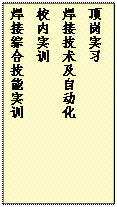 顶岗实习
焊接技术及自动化
校内实训
焊接综合技能实训